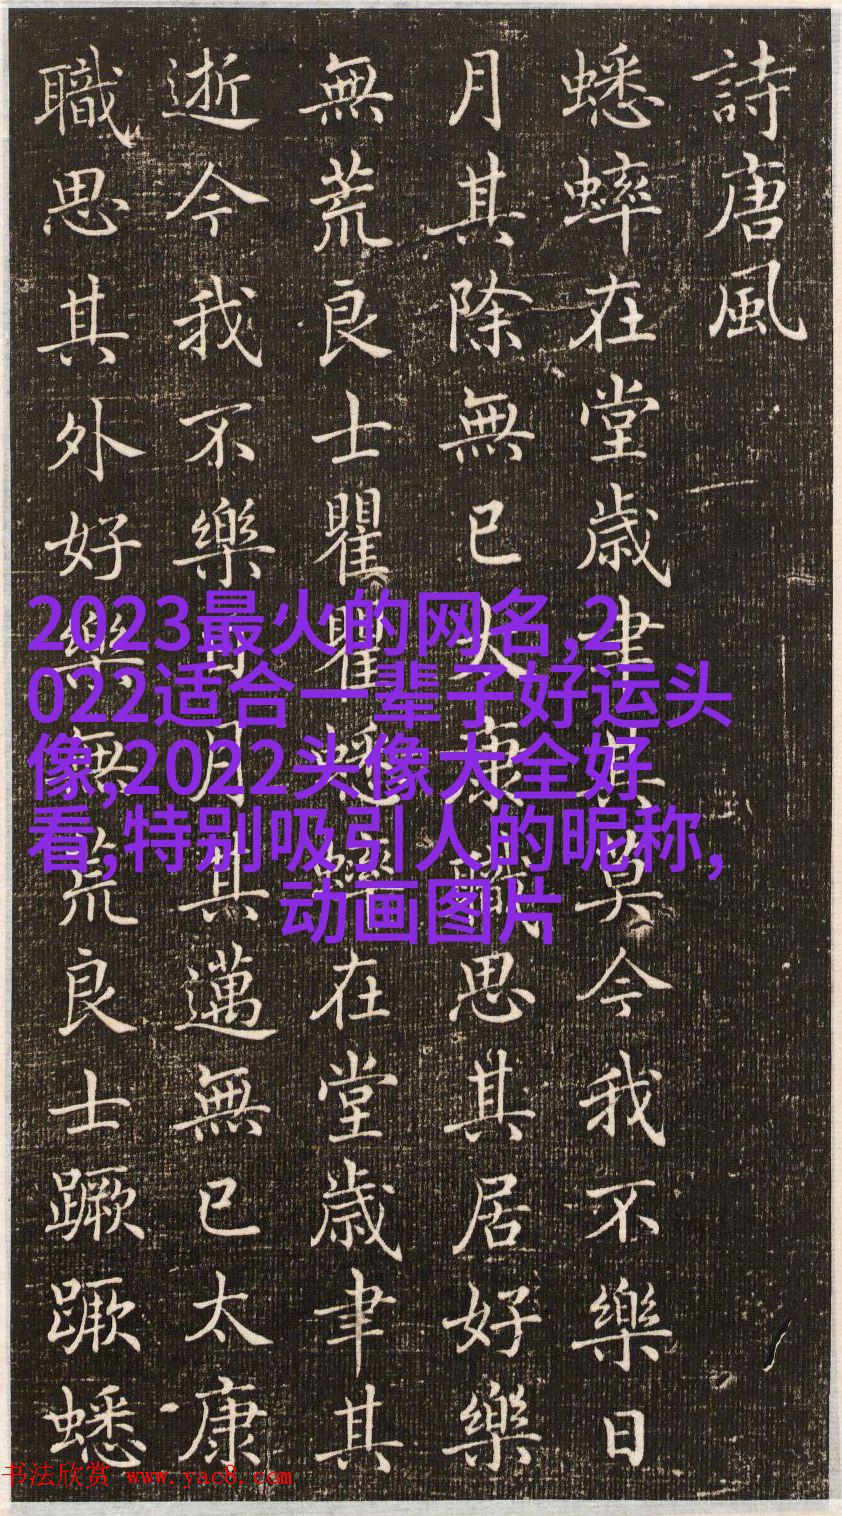 詩唐風
蟋蟀在堂歳聿其莫今我不樂日
月其除無已大康職思其居好樂
無荒良士瞿瞿蟋蟀在堂歳聿其
逝今我不樂日月其邁無已太康
職思其外好樂無荒良士蹶蹶蟋
2023最火的网名,2
022适合一辈子好运头
像,2022头像大全好
看,特别吸引人的昵称,
动画图片
书法欣赏 www.yac8.com